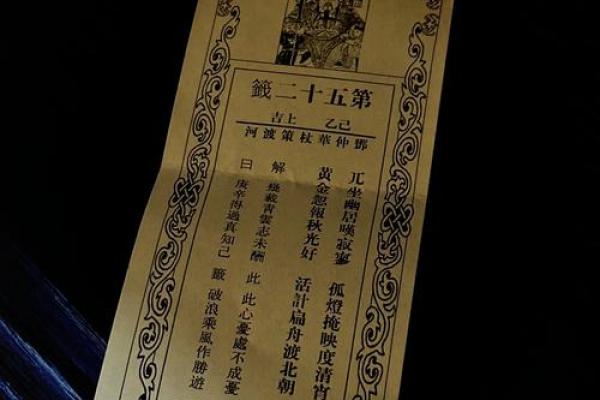 第五十二籤
己乙 上吉
鄧仲華杖策渡河
兀坐幽居嘆寂寥 孤燈掩映度清宵
黃金忽報秋光好 活計扁舟渡北朝
解 幾載青雲志未酬 此 此心憂處不成憂
曰 庚辛得遇真知己 籤 破浪乘風作勝遊